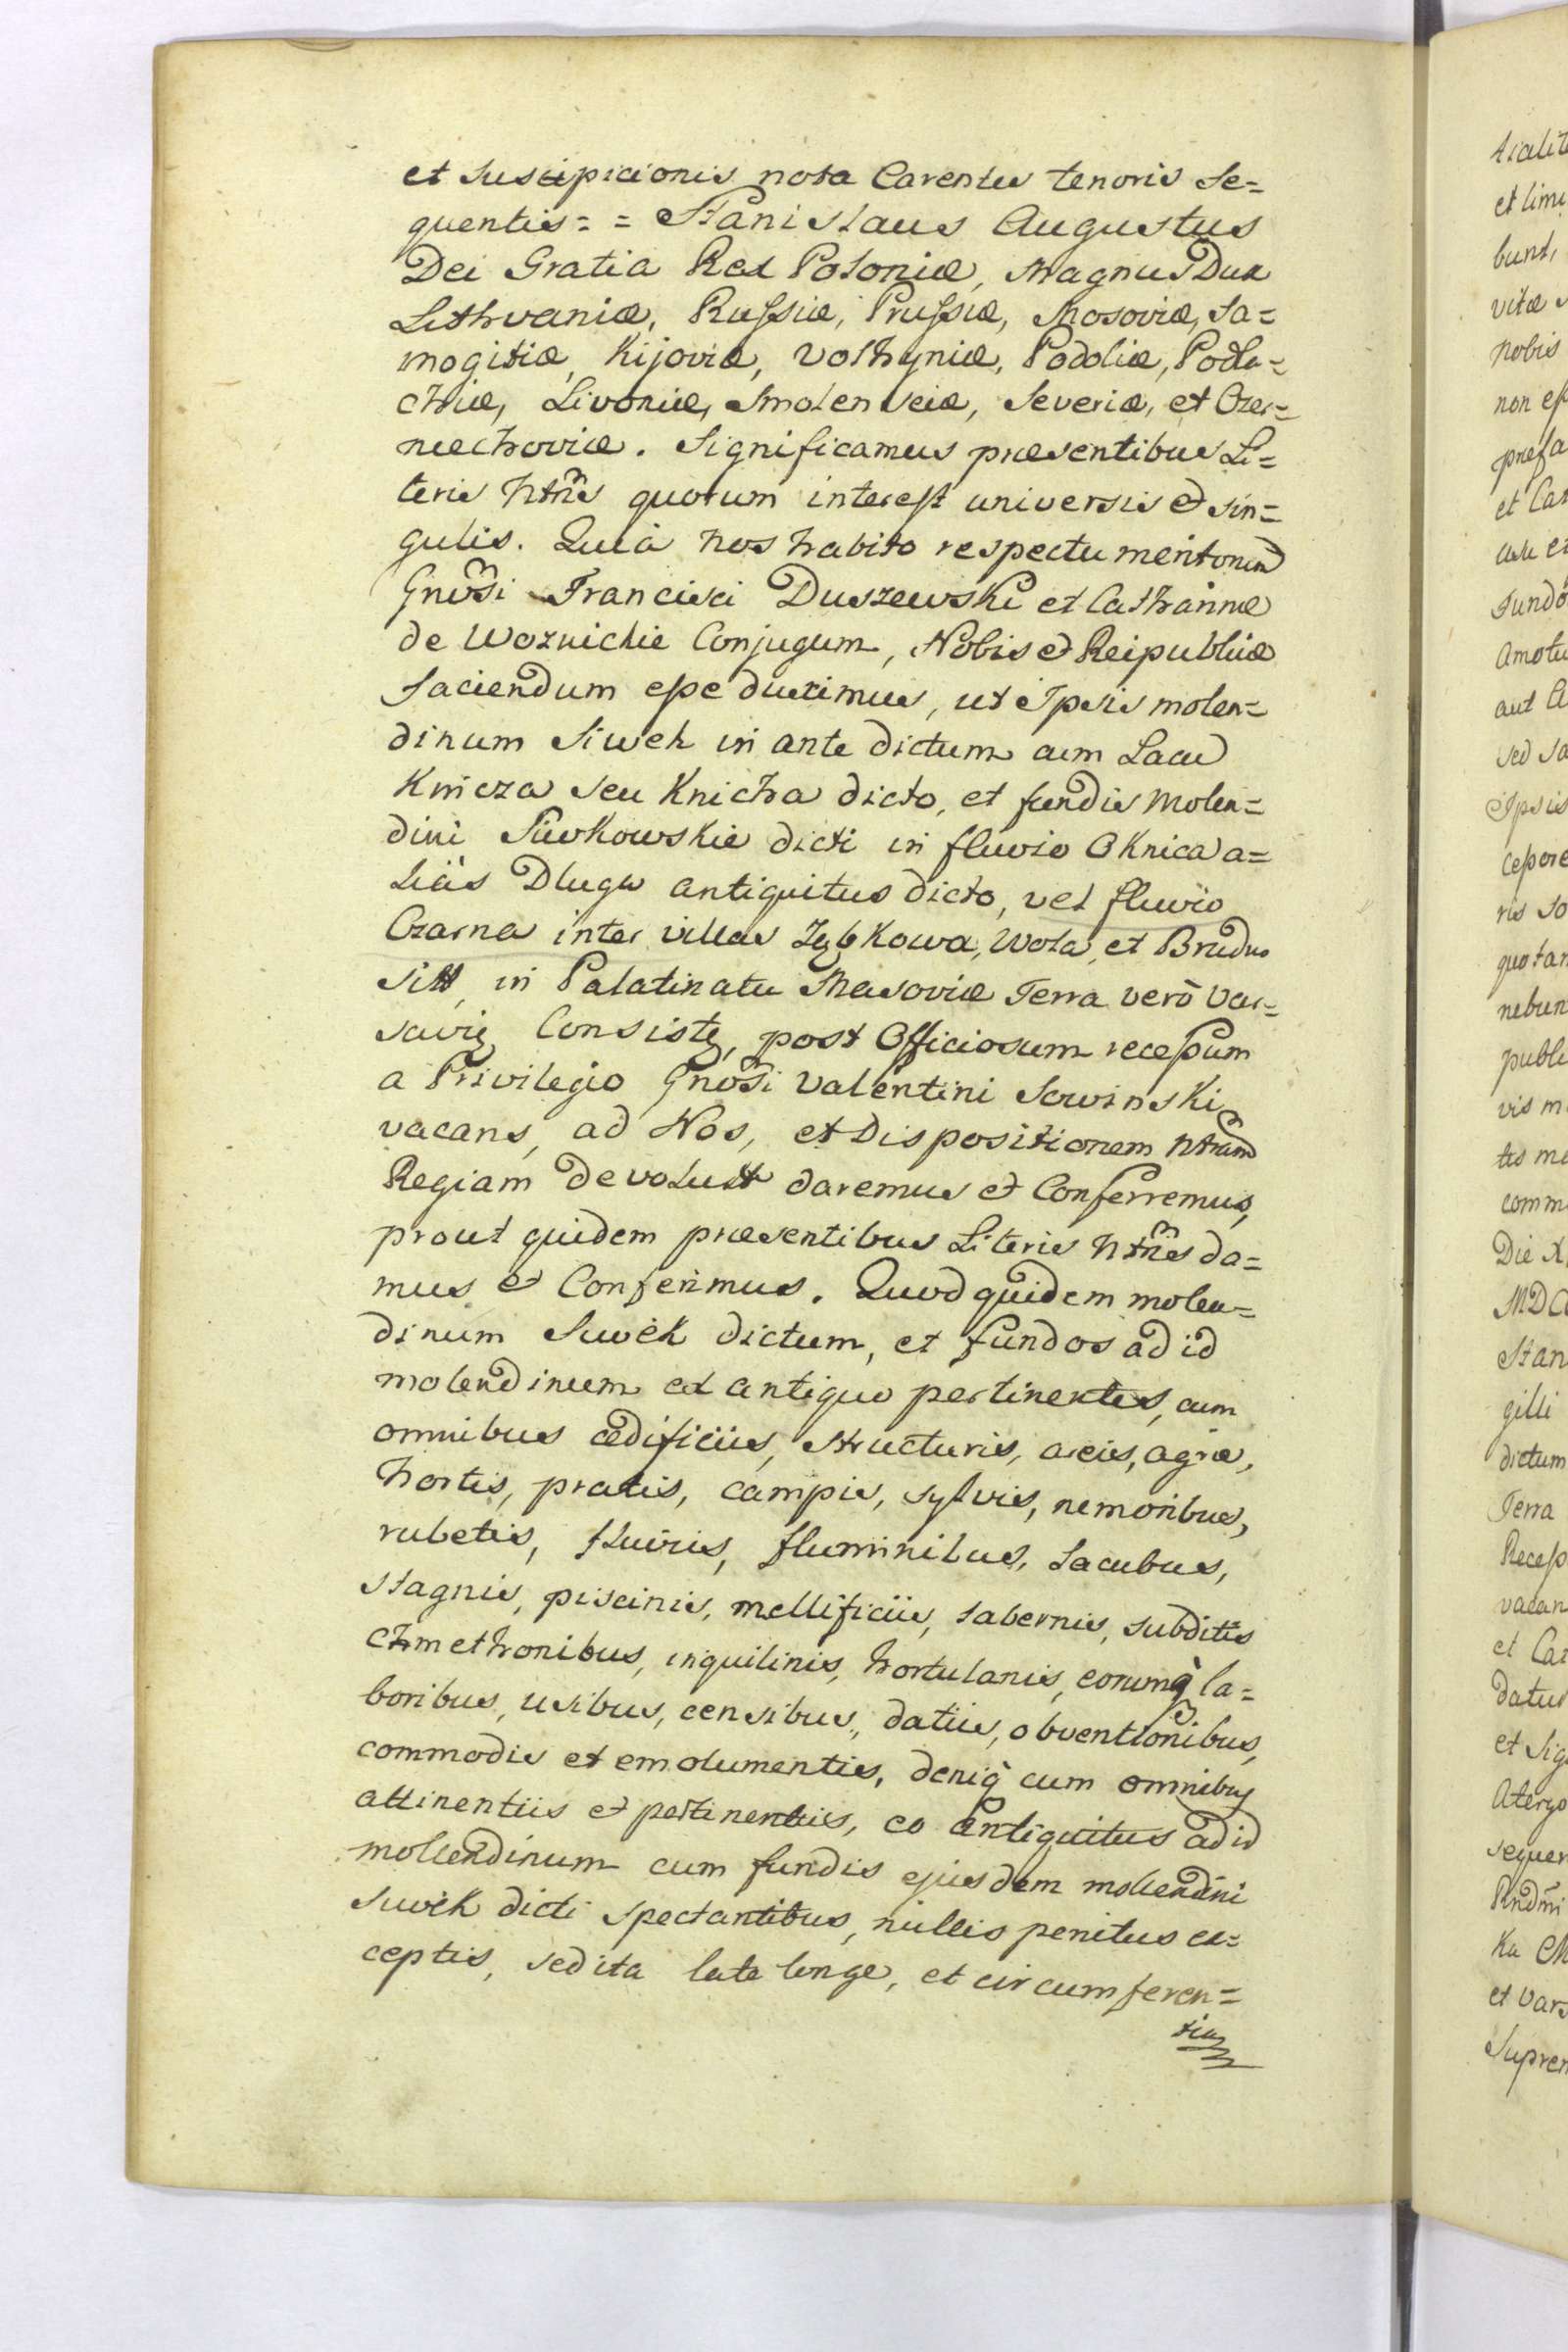 et suscipicionis nota Carentes tenoris se=
quentis = = Stanislaus Augustus
Dei Gratia Rex Poloniæ, Magnus Dux
Lithvaniæ, Russiæ, Prussiæ, Mosoviæ, Sa=
mogitiæ, Kijoviæ, Volhyniæ, Podoliæ, Podla=
chiæ, Livoniæ, Smolensciæ, Severiæ, et Czer=
niechoviæ. Significamus præsentibus Li=
teris Ntris quorum interest universis et sin=
gulis. Quia nos habito respectu meritorum
Gnosi Francisci Duszewski et Catharinæ
de Woznickie Conjugum, Nobis et Reipublicæ
faciendum esse duximus, ut Ipsis molen=
dinum Siwek in ante dictum cum Lacu
Knicza seu Knicha dicto, et fundis Molen=
dini Siwkowskie dicti in fluvio Oknica a=
liàs Dluga antiquitus dicto, vel fluvio
Czarna inter villas Ząbkowa, Wola, et Brudno
sitt, in Palatinatu Masoviæ Terra verò Var=
savię Consistę, post Officiosum recessum
a Privilegio Gnosi Valentini Sowinski
vacans, ad Nos, et Dispositionem Ntram
Regiam devolutt daremus et Conferremus,
prout quidem præsentibus Literis Ntris da=
mus et Conferimus. Quod quidem molen=
dinum Siwek dictum, et fundos ad id
molendinum ex antiquo pertinentes, cum
omnibus ædificiis, structuris, areis, agris,
hortis, pratis, campis, sylvis, nemoribus,
rubetis, fluviis, fluminibus, Lacubus,
stagnis, piscinis, mellificiis, tabernis, subditis
chmethonibus, inquilinis, hortulanis, eorumq̀ la=
boribus, usibus, censibus, datiis, obventionibus,
commodis et emolumentis, deniq̀ cum omnibus
attinentiis et pertinentiis, eo antiquitus ad id
mollendinum cum fundis ejusdem mollendini
Siwek dicti spectantibus, nullis penitus ex=
ceptis, sed ita late longe, et circumferen=
tia